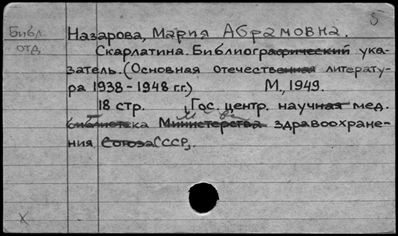 5
Библ.
отд.
Назарова, Мария Абрамовна.
Скарлатина. Библиографический ука-
затель. (Основная отечественная литерату-
ра 1938-1948 гг.) М., 1949.
18 стр. Гос. центр. научная мед.
библиотека Министерства здравоохране-
ния Союза ССР.